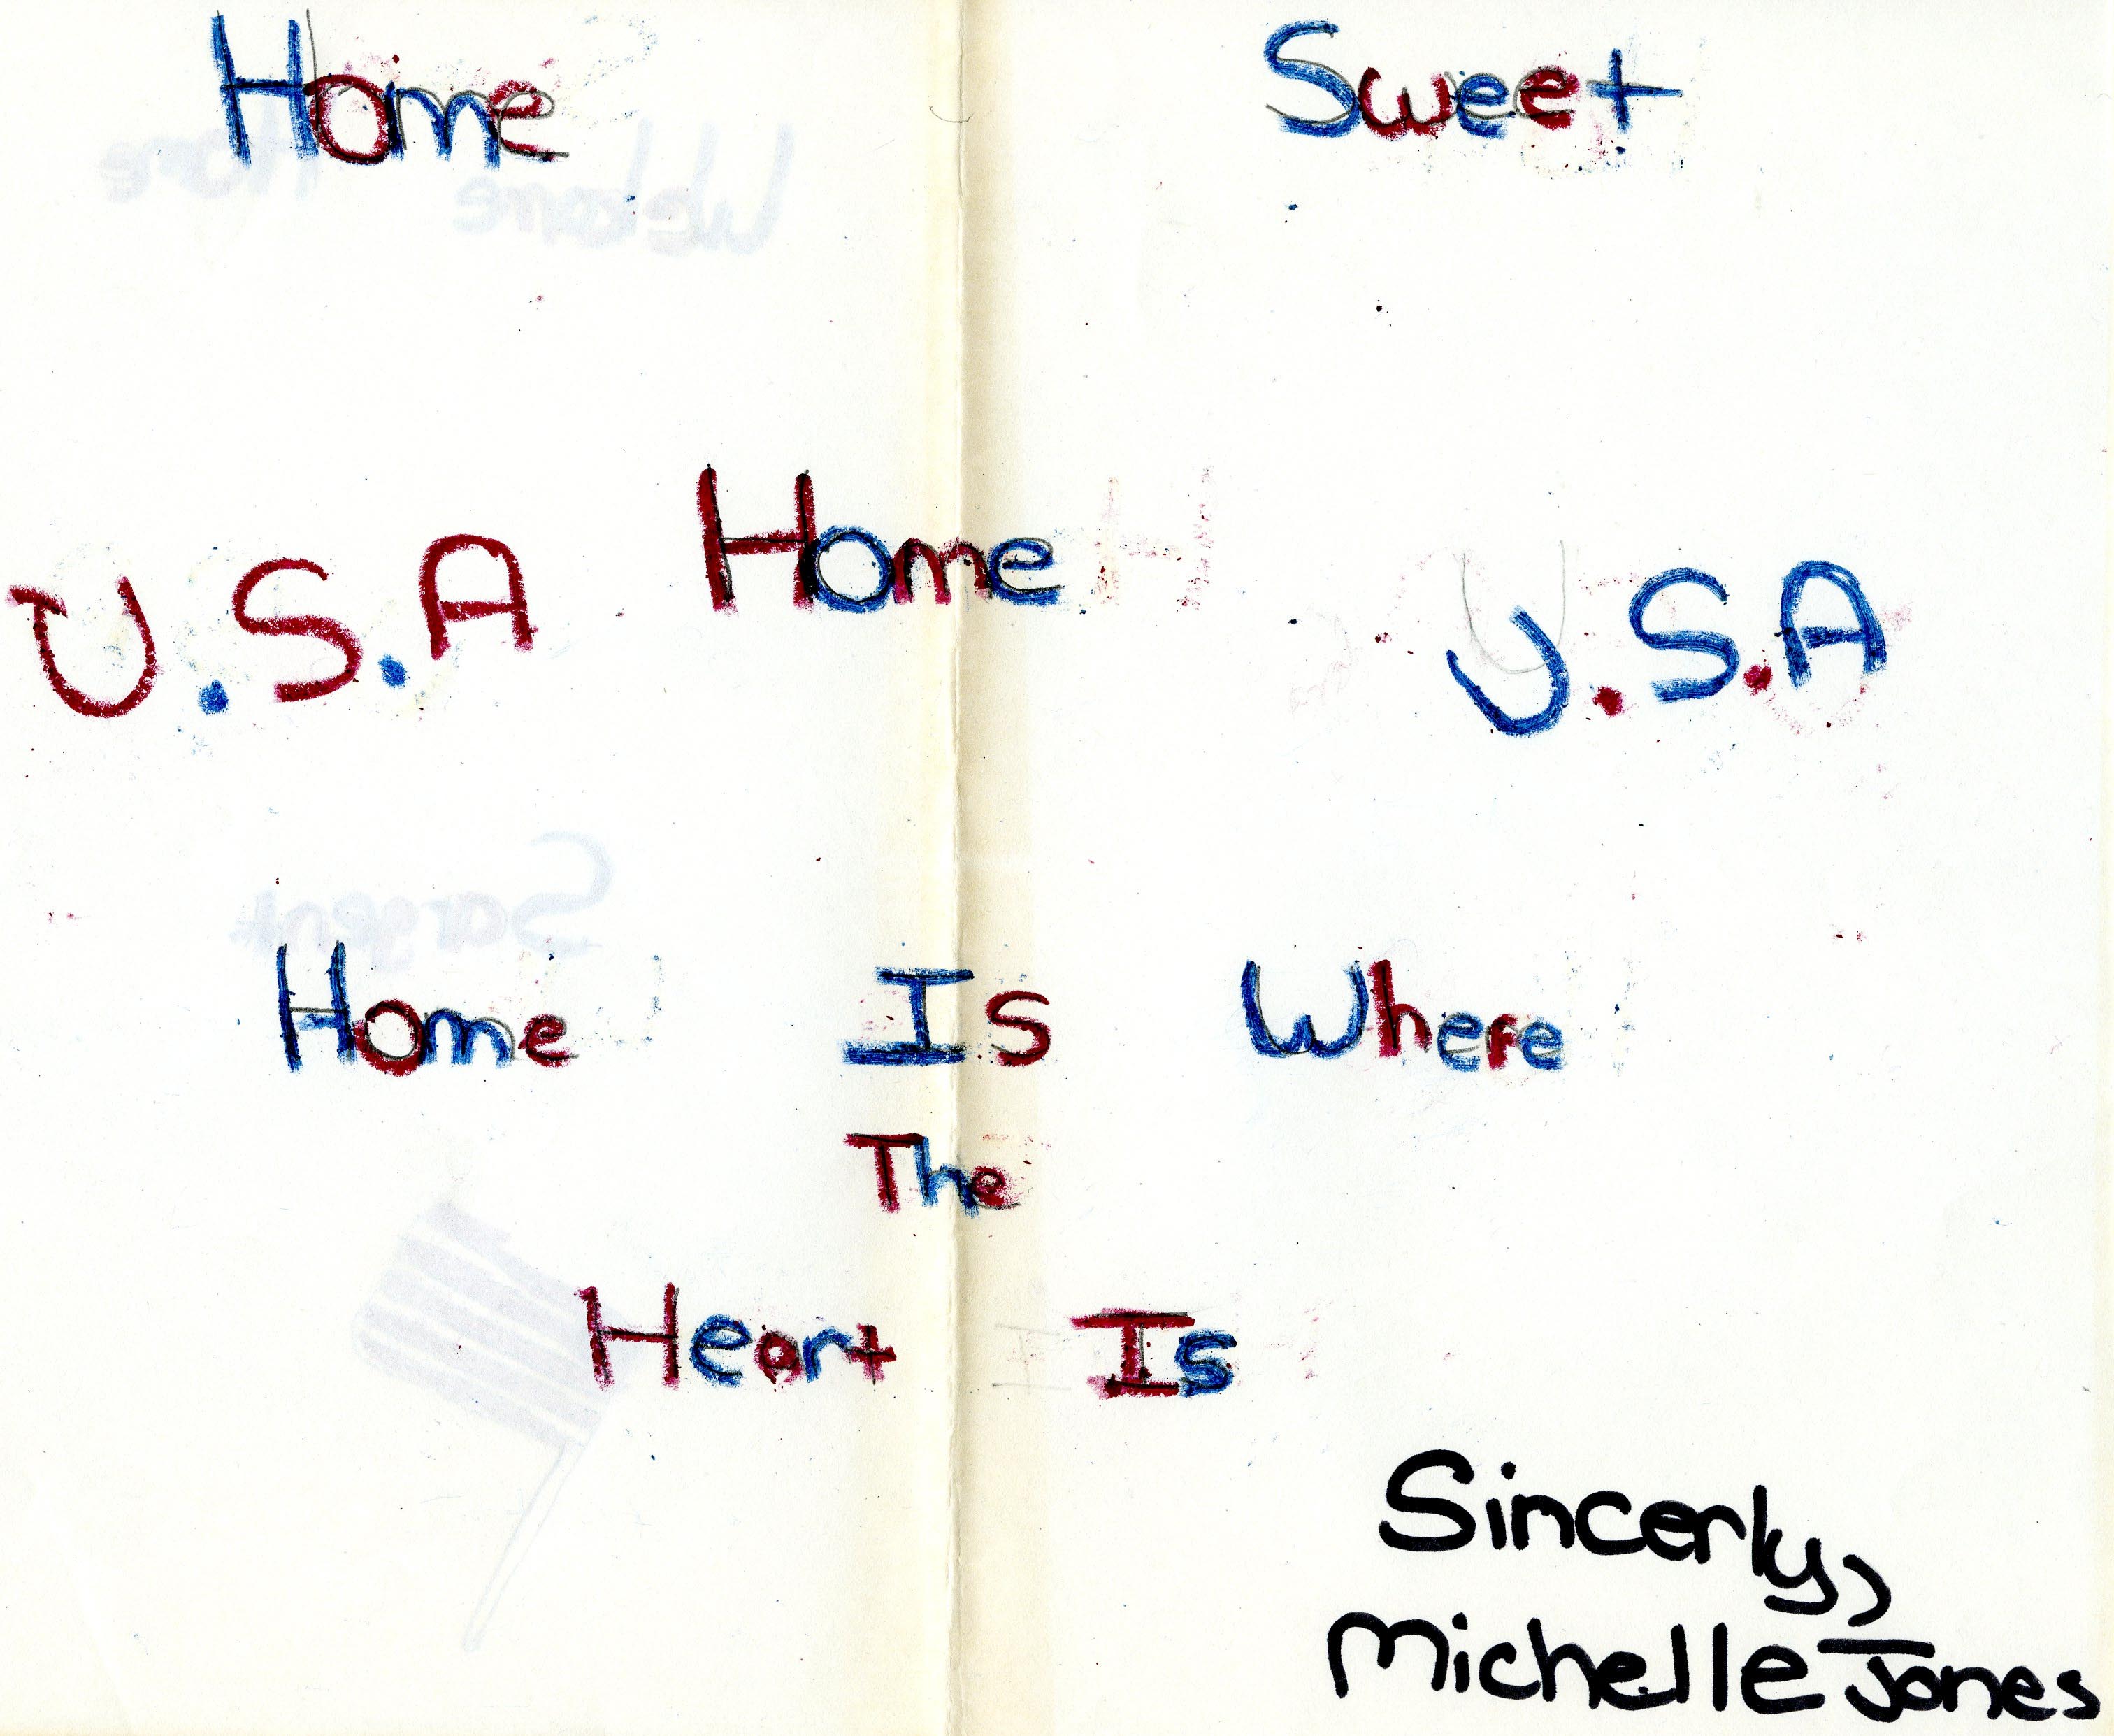 Home Sweet
U.S.A Home U.S.A
Home Is Where
The
Heart Is
Sincerly,
Michelle Jones
Welcome Home
Sargent